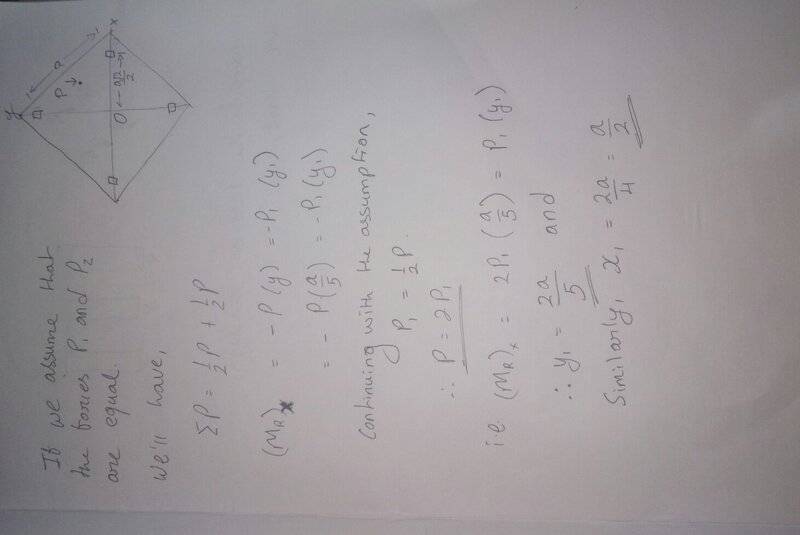 If we assume that
the forces P₁ and P₂
are equal.
we'll have,
ΣP = ½P + ½P
(M_R)ₓ = -P(y) = -P₁(y₁)
= -P(a/5) = -P₁(y₁)
Continuing with the assumption,
P₁ = ½P.
∴ P = 2P₁
i.e (M_R)ₓ = 2P₁(a/5) = P₁(y₁)
∴ y₁ = 2a/5 and
Similarly, x₁ = 2a/4 = a/2
y
a
P
x
O